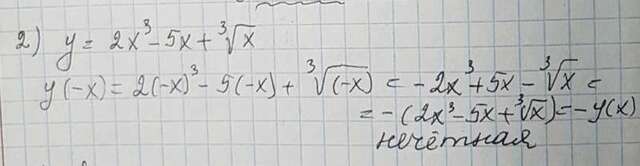 2) y = 2x³ - 5x + ∛x
y(-x) = 2(-x)³ - 5(-x) + ∛(-x) = -2x³ + 5x - ∛x =
= -(2x³ - 5x + ∛x) = -y(x)
нечётная